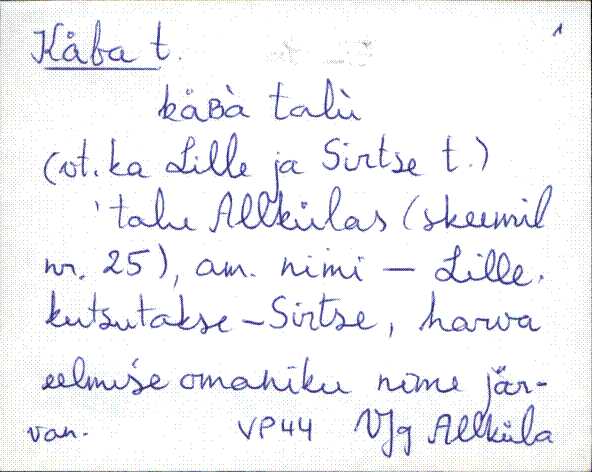 Käba t. 1
käBà talù
(vt. ka Lille ja Sirtse t.)
talu Allkülas (skeemil
nr. 25), am. nimi — Lille.
kutsutakse – Sirtse, harva
eelmise omaniku nime jär-
van. VP44 VJg Allküla